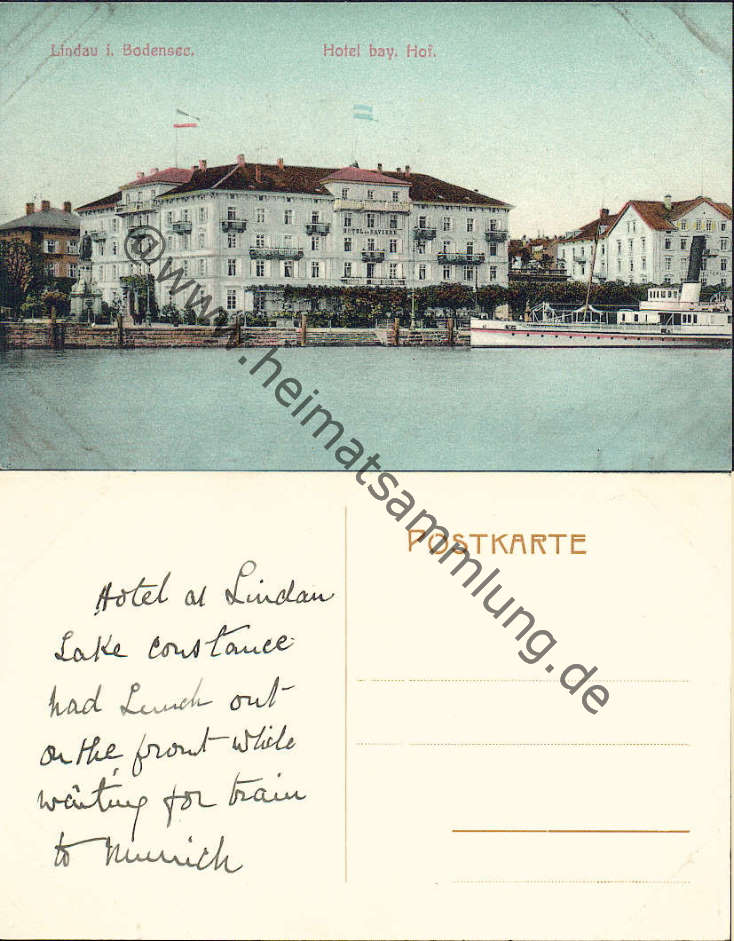 Lindau i. Bodensee. Hotel bay. Hof.
HOTEL DE BAVIERE
@www.heimatsammlung.de
POSTKARTE
Hotel at Lindau
Lake Constance
had Lunch out
on the front while
waiting for train
to Munich